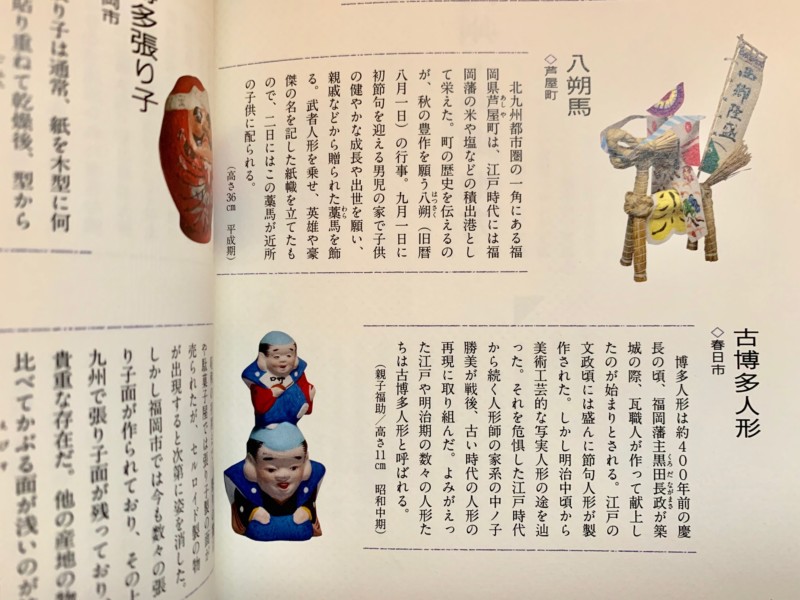 八朔馬
◇芦屋町
北九州都市圏の一角にある福
岡県芦屋町は、江戸時代には福
岡藩の米や塩などの積出港とし
て栄えた。町の歴史を伝えるの
が、秋の豊作を願う八朔（旧暦
八月一日）の行事。九月一日に
初節句を迎える男児の家で子供
の健やかな成長や出世を願い、
親戚などから贈られた藁馬を飾
る。武者人形を乗せ、英雄や豪
傑の名を記した紙幟を立てたも
ので、二日にはこの藁馬が近所
の子供に配られる。
（高さ36㎝　平成期）
古博多人形
◇春日市
博多人形は約400年前の慶
長の頃、福岡藩主黒田長政が築
城の際、瓦職人が作って献上し
たのが始まりとされる。江戸の
文政頃には盛んに節句人形が製
作された。しかし明治中頃から
美術工芸的な写実人形の途を辿
った。それを危惧した江戸時代
から続く人形師の家系の中ノ子
勝美が戦後、古い時代の人形の
再現に取り組んだ。よみがえっ
た江戸や明治期の数々の人形た
ちは古博多人形と呼ばれる。
（親子福助／高さ11㎝　昭和中期）
多張り子
岡市
り子は通常、紙を木型に何
貼り重ねて乾燥後、型から
や駄菓子屋では張り子製の面が
売られたが、セルロイド製の物
が出現すると次第に姿を消した。
しかし福岡市では今も数々の張
り子面が作られており、その上
九州で張り子面が残っており
貴重な存在だ。他の産地の物
比べてかぶる面が浅いのが